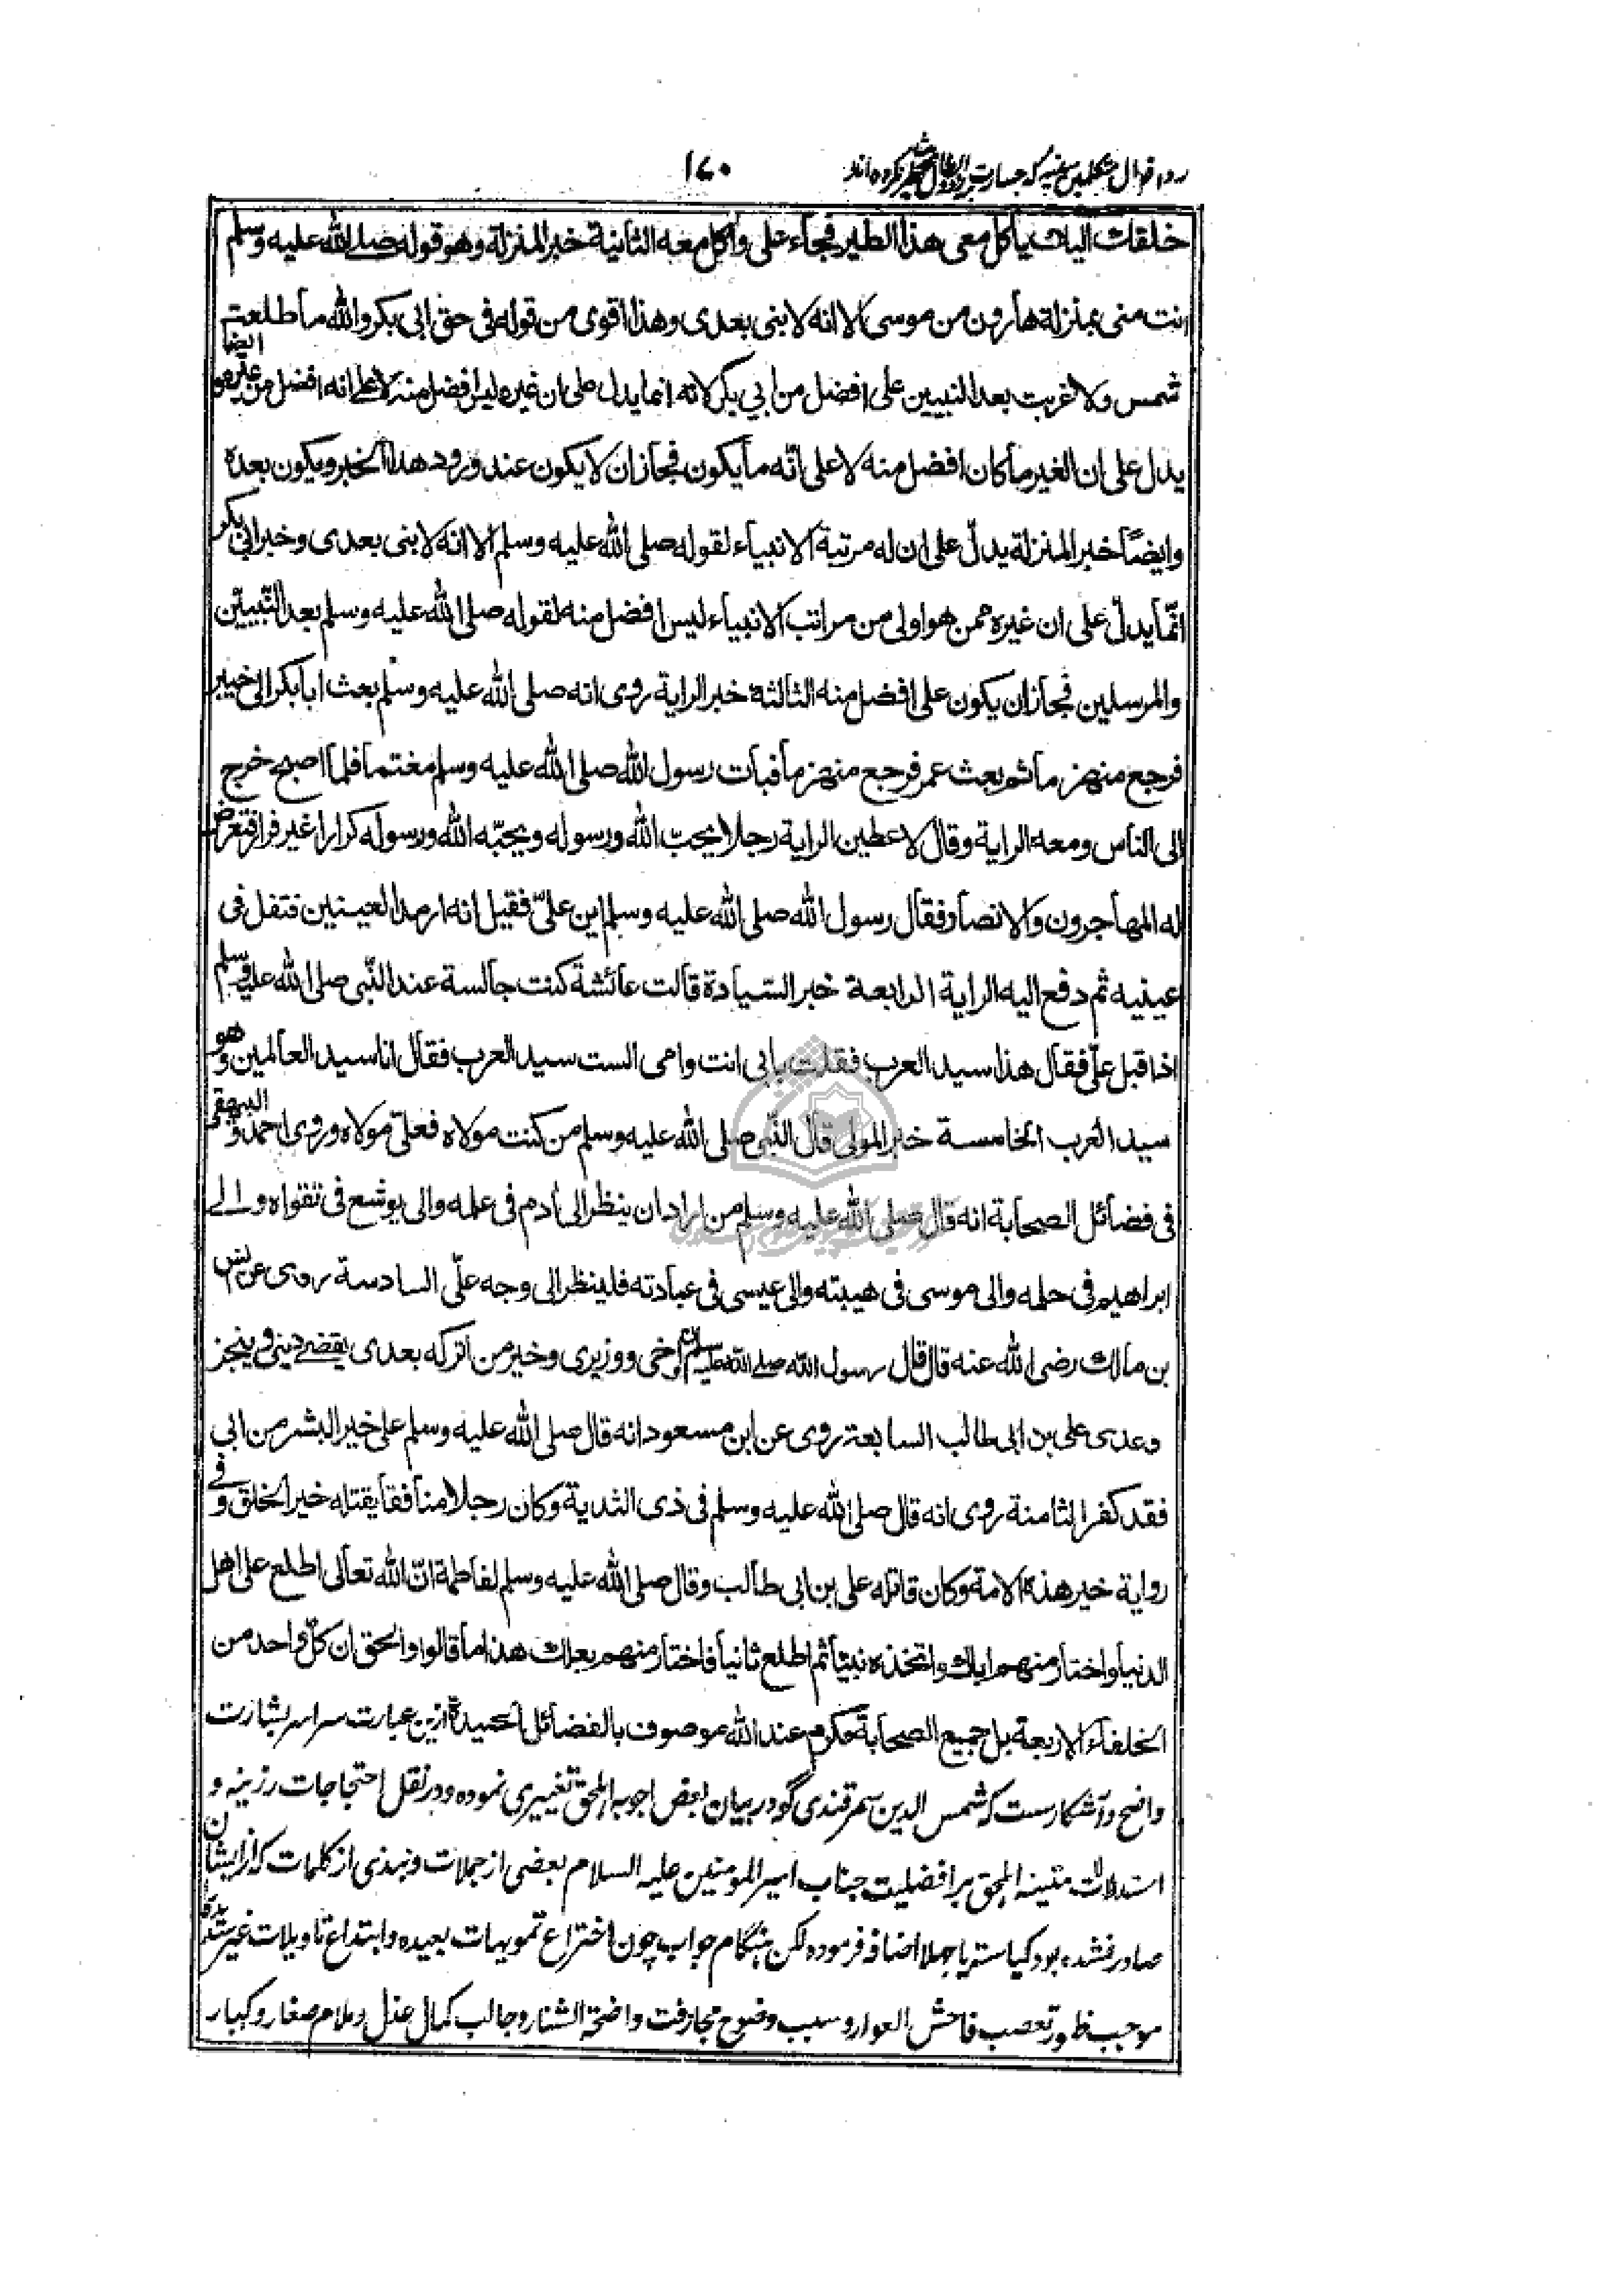 رد اقوال متکلمین سنیه که جسارت بر ابطال حدیث طیر نکرده اند ١٧٠
خلقك اليك يأكل معى هذا الطير فجاء على واكل معه الثانية خبر المنزلة وهو قوله صلے الله عليه وسلم
انت منى بمنزلة هارون من موسى الا انه لا نبى بعدى وهذا اقوى من قوله فى حق ابى بكر والله ما طلعت
شمس ولا غربت بعد النبيين على افضل من ابي بكر لانه انما يدل على ان غيره ليس افضل منه لا على انه افضل من غيره وايضا
يدل على ان الغير ما كان افضل منه لا على انّه ما يكون فجاز ان لا يكون عند ورود هذا الخبر ويكون بعده
وايضًا خبر المنزلة يدلّ على ان له مرتبة الانبياء لقوله صلى الله عليه وسلم الا انه لا نبى بعدى وخبر ابى بكر
انّما يدلّ على ان غيره ممن هو اولى من مراتب الانبياء ليس افضل منه لقوله صلى الله عليه وسلم بعد النّبيين
والمرسلين فجاز ان يكون على افضل منه الثالثة خبر الراية روى انه صلى الله عليه وسلم بعث ابا بكر الى خيبر
فرجع منهزما ثم بعث عمر فرجع منهزما فبات رسول الله صلى الله عليه وسلم مغتما فلما اصبح خرج
الى الناس ومعه الراية وقال لاعطين الراية رجلا يحبّ الله ورسوله ويحبّه الله ورسوله كرارا غير فرار فتعرض
له المهاجرون والانصار فقال رسول الله صلى الله عليه وسلم اين علىّ فقيل انه ارمد العينين فتفل فى
عينيه ثم دفع اليه الراية الرابعة خبر السّيادة قالت عائشة كنت جالسة عند النّبى صلى الله عليه وسلم
اذ اقبل علىّ فقال هذا سيد العرب فقلت بابى انت وامى الست سيد العرب فقال انا سيد العالمين وهو
سيد العرب الخامسة خبر المولى قال النّبى صلى الله عليه وسلم من كنت مولاه فعلىّ مولاه وروى احمد والبيهقى
فى فضائل الصحابة انه قال صلى الله عليه وسلم من اراد ان ينظر الى ادم فى علمه والى يوشع فى تقواه والے
ابراهيم فى حلمه والى موسى فى هيبته والى عيسى فى عبادته فلينظر الى وجه علىّ السادسة روى عن انس
بن مالك رضى الله عنه قال قال رسول الله صلى الله عليه وسلم ان اخى ووزيرى وخير من اتركه بعدى يقضے دينى وينجز
وعدى على بن ابى طالب السابعة روى عن ابن مسعود انه قال صلى الله عليه وسلم على خير البشر من ابي
فقد كفر الثامنة روى انه قال صلى الله عليه وسلم فى ذى الثدية وكان رجلا منافقا يقتله خير الخلق وفے
رواية خير هذه الامة وكان قاتله على بن ابى طالب وقال صلى الله عليه وسلم لفاطمة انّ الله تعالى اطلع على اهل
الدنيا واختار منهم اباك واتخذه نبيّا ثم اطلع ثانيا فاختار منهم بعلك هذا ما قالوا والحق ان كلّ واحد من
الخلفاء الاربعة بل جميع الصحابة مكرم عند الله موصوف بالفضائل الحميدة ازین عبارت سراسر بشارت
واضح و آشکارست که شمس الدین سمرقندی گو در بیان بعض اجوبه اهل حق تغییری نموده و در نقل احتجاجات رزینه و
استدلالات متینه اهل حق بر افضلیت جناب امیر المومنین علیه السلام بعضی از جملات و نبذی از کلمات که از ایشان
صادر نشده بود کیاسته یا جملا اضافه فرموده لکن هنگام جواب چون اختراع تمویهات بعیده و ابتداع تاویلات غیر سدیده
موجب ظهور تعصب فاحش العوار و سبب وضوح مجازفت واضحة الشنار و جالب کمال عذل و ملام صغار و کبار